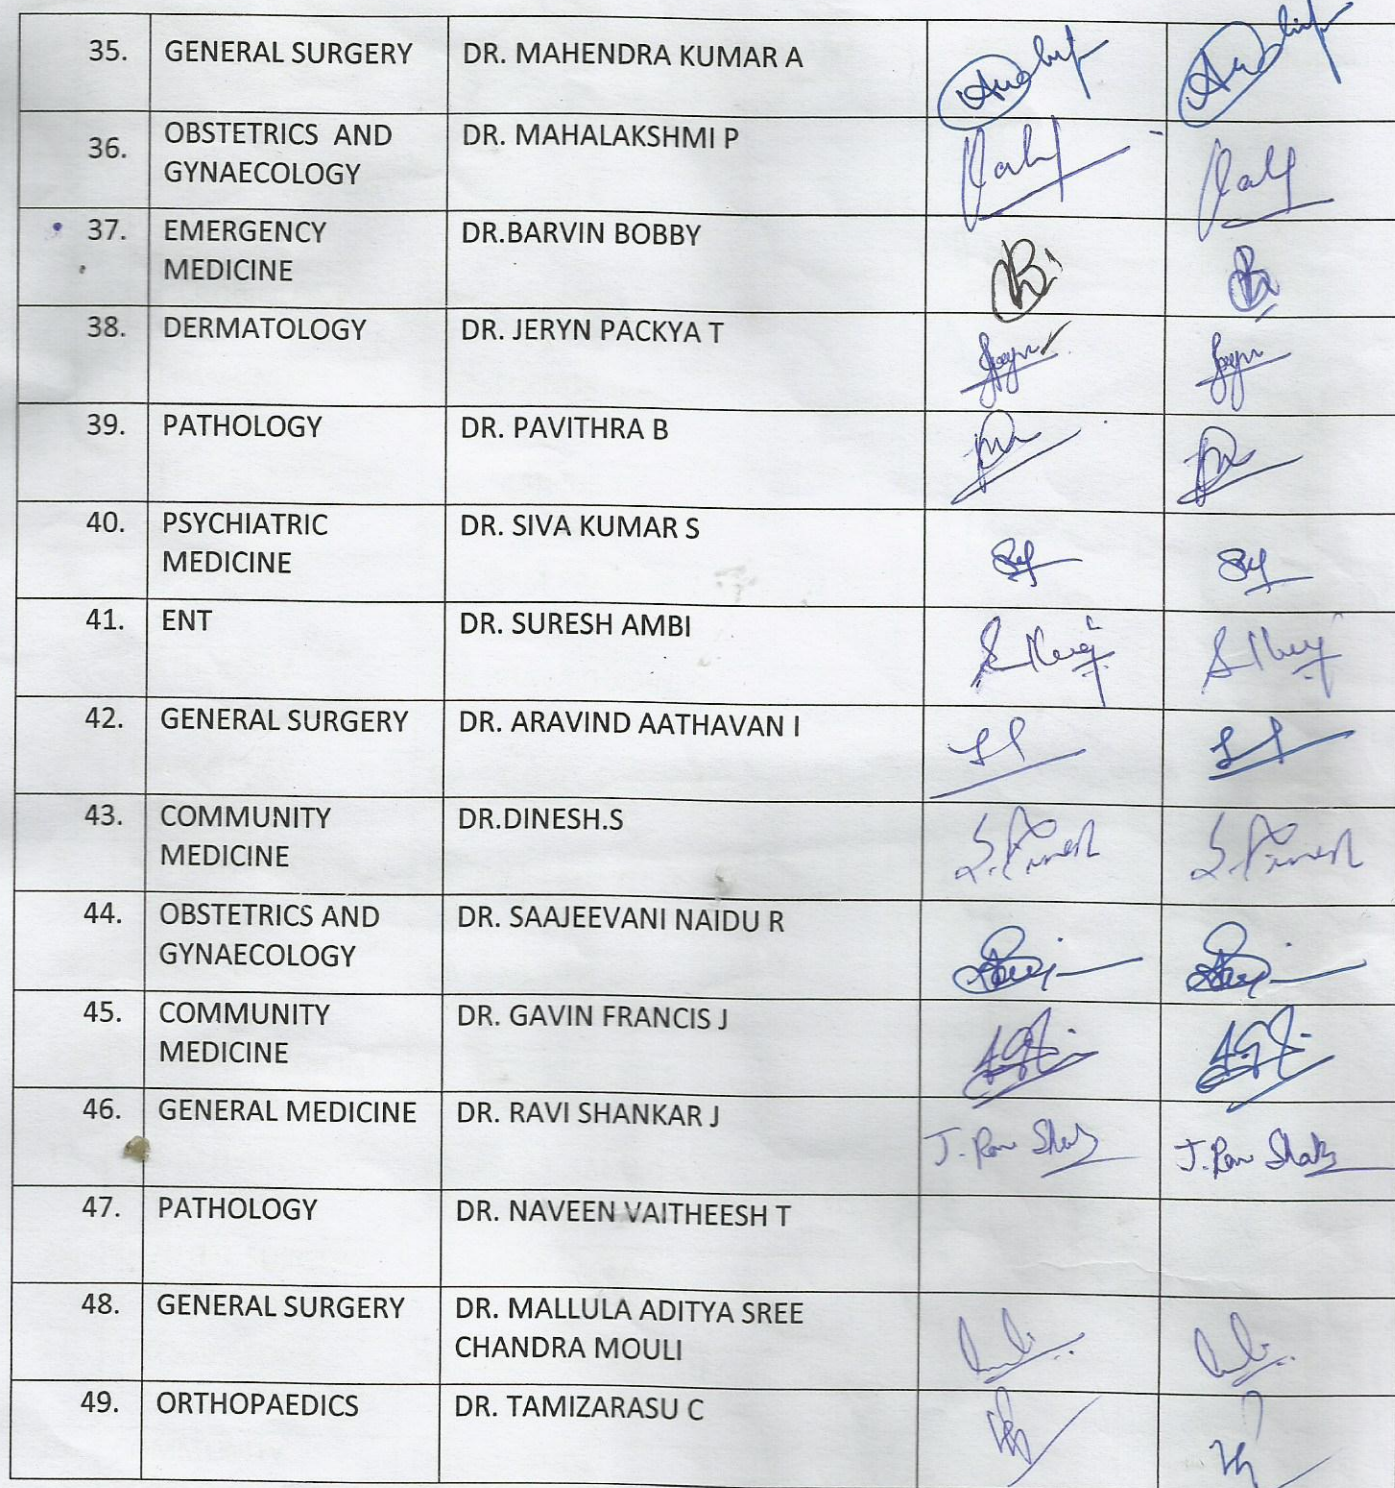 35. GENERAL SURGERY DR. MAHENDRA KUMAR A
36. OBSTETRICS AND GYNAECOLOGY DR. MAHALAKSHMI P
37. EMERGENCY MEDICINE DR.BARVIN BOBBY
38. DERMATOLOGY DR. JERYN PACKYA T
39. PATHOLOGY DR. PAVITHRA B
40. PSYCHIATRIC MEDICINE DR. SIVA KUMAR S
41. ENT DR. SURESH AMBI
42. GENERAL SURGERY DR. ARAVIND AATHAVAN I
43. COMMUNITY MEDICINE DR.DINESH.S S. Dinesh S. Dinesh
44. OBSTETRICS AND GYNAECOLOGY DR. SAAJEEVANI NAIDU R
45. COMMUNITY MEDICINE DR. GAVIN FRANCIS J
46. GENERAL MEDICINE DR. RAVI SHANKAR J
47. PATHOLOGY DR. NAVEEN VAITHEESH T
48. GENERAL SURGERY DR. MALLULA ADITYA SREE CHANDRA MOULI
49. ORTHOPAEDICS DR. TAMIZARASU C